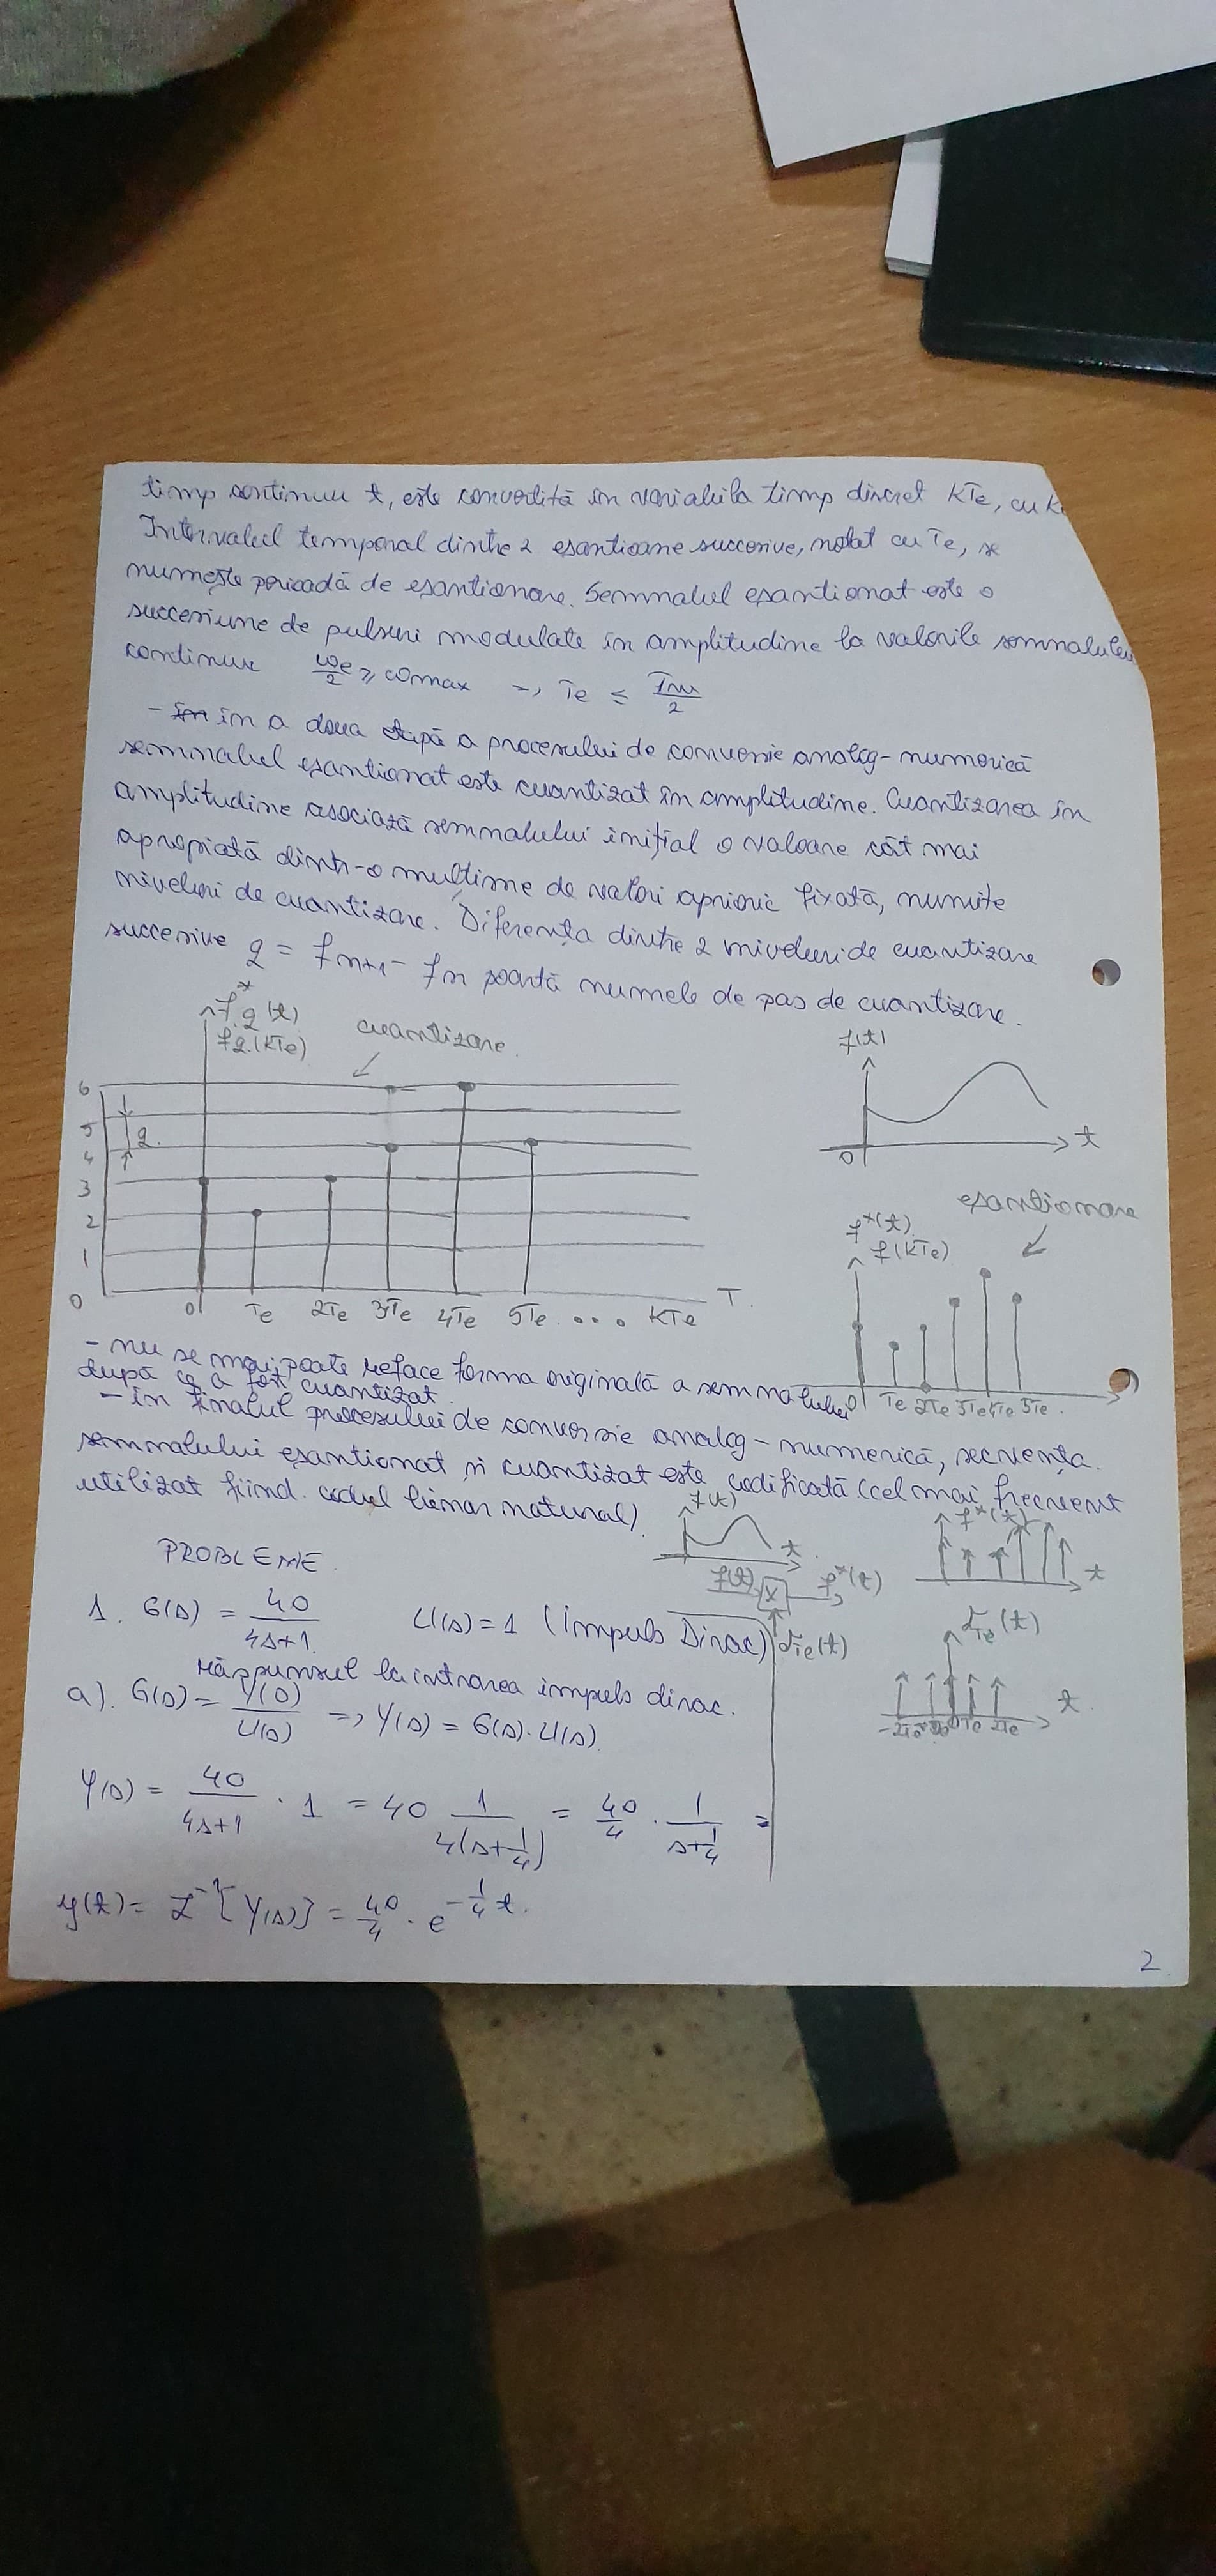 timp continuu t, este convertită în variabila timp discret KTe, cu K
Intervalul temporal dintre 2 esantioane succesive, notat cu Te, se
numește perioadă de esantionare. Semnalul esantionat este o
succesiune de pulsuri modulate în amplitudine la valorile semnalului
continuu ωe/2 ≥ ωmax → Te ≤ Tm/2
- în a doua etapă a procesului de conversie analog-numerică
semnalul esantionat este cuantizat în amplitudine. Cuantizarea în
amplitudine asociază semnalului inițial o valoare cât mai
apropiată dintr-o mulțime de valori aprioric fixată, numite
niveluri de cuantizare. Diferența dintre 2 niveluri de cuantizare
succesive q = fn+1 - fn poartă numele de pas de cuantizare.
f*q(t)
fq(KTe)
cuantizare
6
5
4
3
2
1
0
q
0 Te 2Te 3Te 4Te 5Te ... KTe T
f(t)
0 t
esantionare
f*(t)
f(KTe)
0 Te 2Te 3Te 4Te 5Te
- nu se mai poate reface forma originală a semnalului
după ce a fost cuantizat.
- în finalul procesului de conversie analog-numerică, secvența
semnalului esantionat și cuantizat este codificată (cel mai frecvent
utilizat fiind codul binar natural)
f(t)
t
f*(t)
t
f(t) X f*(t)
δTe(t)
δTe(t)
-2Te 0 Te 2Te t
PROBLEME
1. G(s) = 40/(4s+1) U(s) = 1 (Impuls Dirac)
răspunsul la intrarea impuls dirac.
a). G(s) = Y(s)/U(s) => Y(s) = G(s)·U(s)
Y(s) = 40/(4s+1) · 1 = 40 1/(4(s+1/4)) = 40/4 · 1/(s+1/4) =
y(t) = L⁻¹[Y(s)] = 40/4 · e^(-1/4 t)
2